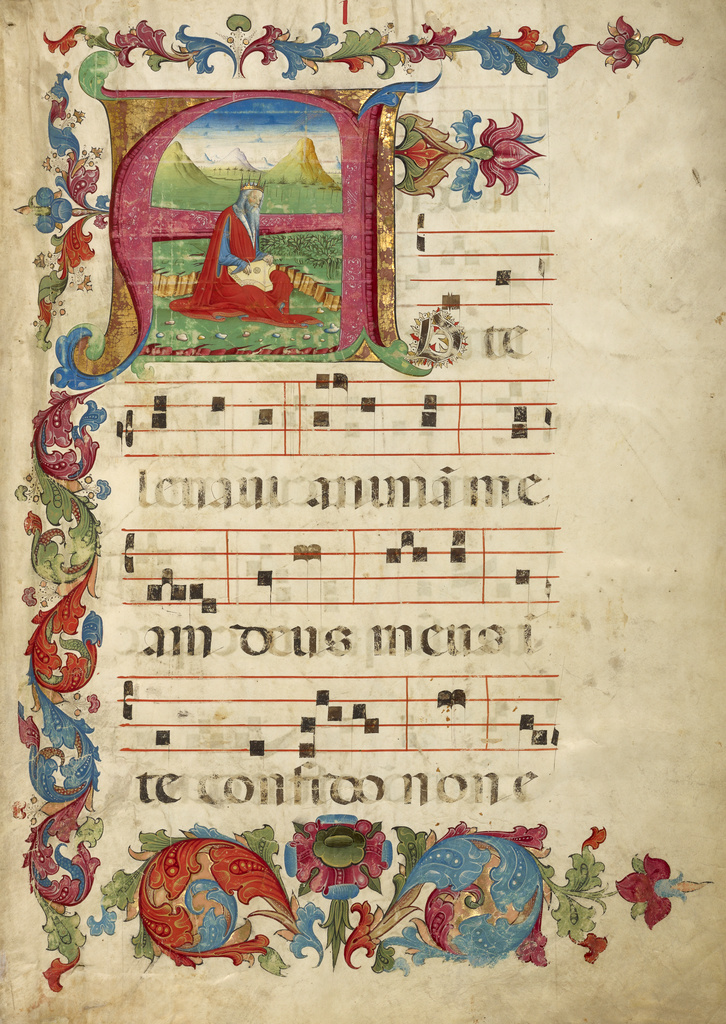 A D te
leuaui animã me
am deus meus i
te confido non e